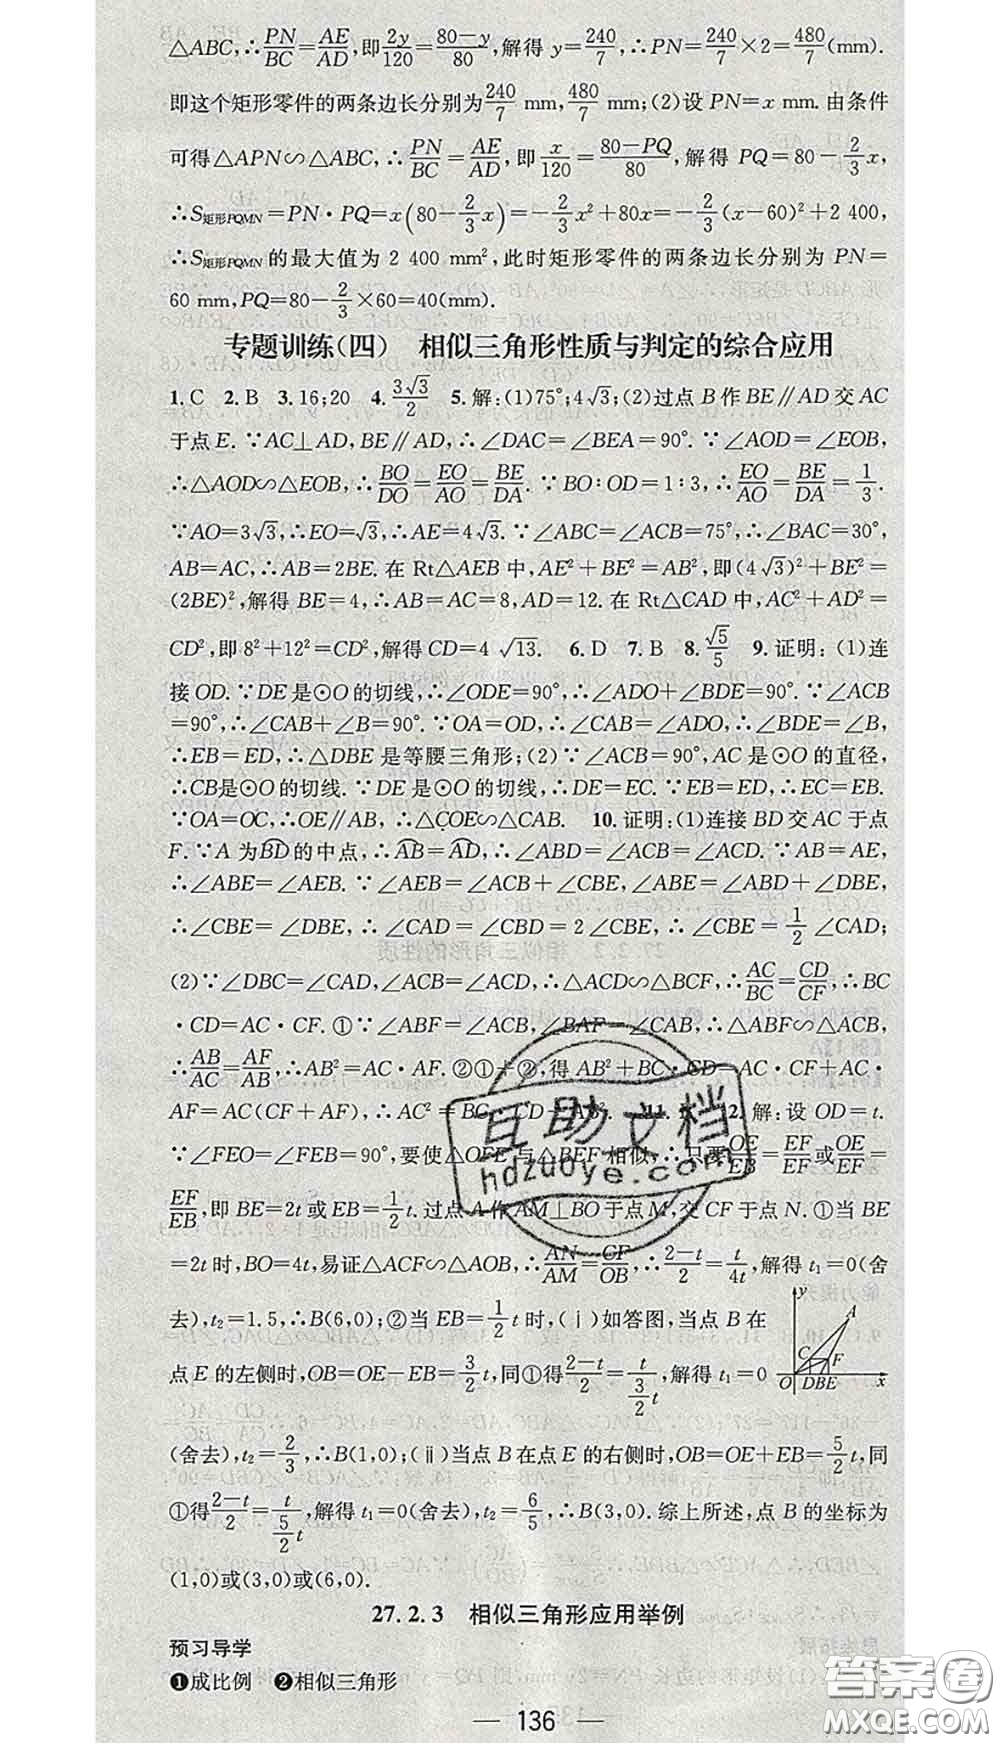 △ABC,∴PN/BC=AE/AD,即2y/120=(80-y)/80,解得 y=240/7,∴PN=240/7×2=480/7(mm).
即这个矩形零件的两条边长分别为240/7 mm,480/7 mm;(2)设 PN=x mm.由条件
可得△APN∽△ABC,∴PN/BC=AE/AD,即x/120=(80-PQ)/80,解得 PQ=80-2/3x,
∴S矩形PQMN=PN·PQ=x(80-2/3x)=-2/3x²+80x=-2/3(x-60)²+2 400,
∴S矩形PQMN的最大值为 2 400 mm²,此时矩形零件的两条边长分别为 PN=
60 mm,PQ=80-2/3×60=40(mm).
专题训练(四) 相似三角形性质与判定的综合应用
1.C 2.B 3.16;20 4.3√3/2 5.解:(1)75°;4√3;(2)过点 B 作 BE∥AD 交 AC
于点 E.∵AC⊥AD,BE∥AD,∴∠DAC=∠BEA=90°.∵∠AOD=∠EOB,
∴△AOD∽△EOB,∴BO/DO=EO/AO=BE/DA.∵BO∶OD=1∶3,∴EO/AO=BE/DA=1/3.
∵AO=3√3,∴EO=√3,∴AE=4√3.∵∠ABC=∠ACB=75°,∴∠BAC=30°,
AB=AC,∴AB=2BE.在 Rt△AEB 中,AE²+BE²=AB²,即(4√3)²+BE²=
(2BE)²,解得 BE=4,∴AB=AC=8,AD=12.在 Rt△CAD 中,AC²+AD²=
CD²,即 8²+12²=CD²,解得 CD=4√13. 6.D 7.B 8.√5/5 9.证明:(1)连
接 OD.∵DE 是⊙O 的切线,∴∠ODE=90°,∴∠ADO+∠BDE=90°.∵∠ACB
=90°,∴∠CAB+∠B=90°.∵OA=OD,∴∠CAB=∠ADO,∴∠BDE=∠B,
∴EB=ED,∴△DBE 是等腰三角形;(2)∵∠ACB=90°,AC 是⊙O 的直径,
∴CB是⊙O 的切线.∵DE 是⊙O 的切线,∴DE=EC.∵EB=ED,∴EC=EB.
∵OA=OC,∴OE∥AB,∴△COE∽△CAB. 10.证明:(1)连接 BD 交 AC 于点
F.∵A 为BD的中点,∴AB=AD,∴∠ABD=∠ACB=∠ACD.∵AB=AE,
∴∠ABE=∠AEB.∵∠AEB=∠ACB+∠CBE,∠ABE=∠ABD+∠DBE,
∴∠CBE=∠DBE,∴∠CAD=∠CBD=2∠CBE,∴∠CBE=1/2∠CAD;
(2)∵∠DBC=∠CAD,∠ACB=∠ACD,∴△ACD∽△BCF,∴AC/BC=CD/CF,∴BC
·CD=AC·CF.①∵∠ABF=∠ACB,∠BAF=∠CAB,∴△ABF∽△ACB,
∴AB/AC=AF/AB,∴AB²=AC·AF.②①+②,得 AB²+BC·CD=AC·CF+AC·
AF=AC(CF+AF),∴AC²=BC·CD+AB². 11. 12.解:设 OD=t.
∵∠FEO=∠FEB=90°,要使△OEF 与△BEF 相似,∴只要OE/EB=EF/EF或OE/EF=
EF/EB,即 BE=2t 或 EB=1/2t.过点 A 作 AM⊥BO 于点 M,交 CF 于点 N.①当 BE
=2t 时,BO=4t,易证△ACF∽△AOB,∴AN/AM=CF/OB,∴(2-t)/2=t/4t,解得 t₁=0(舍
去),t₂=1.5,∴B(6,0);②当 EB=1/2t 时,(ⅰ)如答图,当点 B 在
点 E 的左侧时,OB=OE-EB=3/2t,同①得(2-t)/2=t/(3/2t),解得 t₁=0
y
A
C
F
O
D
B
E
x
(舍去),t₂=2/3,∴B(1,0);(ⅱ)当点 B 在点 E 的右侧时,OB=OE+EB=5/2t,同
①得(2-t)/2=t/(5/2t),解得 t₁=0(舍去),t₂=6/5,∴B(3,0).综上所述,点 B 的坐标为
(1,0)或(3,0)或(6,0).
27.2.3 相似三角形应用举例
预习导学
❶成比例 ❷相似三角形
— 136 —
互助文档
hdzuoye.com
答案圈
MXQE.COM